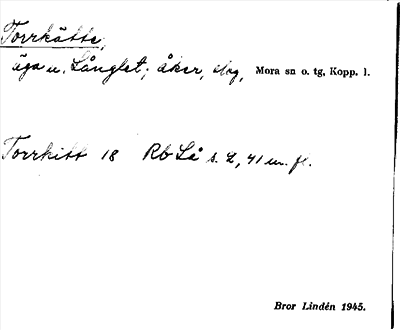 Torrkätte,
äga u. Långlet; åker, skog, Mora sn o. tg, Kopp. l.
Torrkitt 18 Rb Lå s. 2, 41 m. fl.
Bror Lindén 1945.